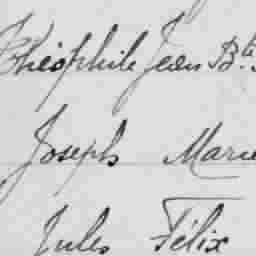 Théophile Jean Bte
Joseph Marie
Jules Félix